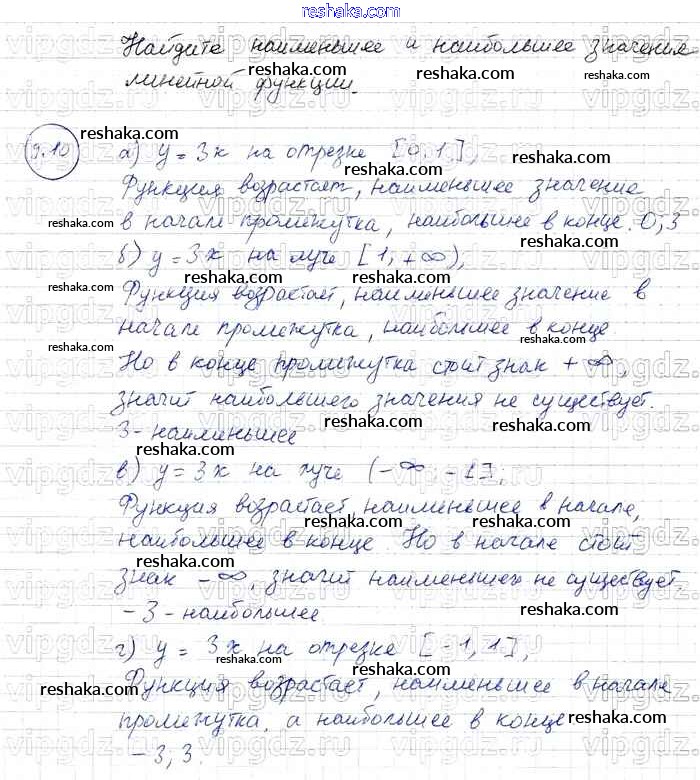 reshaka.com
Найдите наименьшее и наибольшее значения
линейной функции.
9.10
а) y = 3x на отрезке [0,1],
Функция возрастает, наименьшее значение
в начале промежутка, наибольшее в конце. 0; 3
б) y = 3x на луче [1, +∞),
Функция возрастает, наименьшее значение в
начале промежутка, наибольшее в конце
Но в конце промежутка стоит знак +∞,
значит наибольшего значения не существует.
3 - наименьшее
в) y = 3x на луче (-∞ -1],
Функция возрастает, наименьшее в начале,
наибольшее в конце. Но в начале стоит
знак -∞, значит наименьшего не существует.
-3 - наибольшее
г) y = 3x на отрезке [-1, 1],
Функция возрастает, наименьшее в начале
промежутка, а наибольшее в конце
-3, 3.